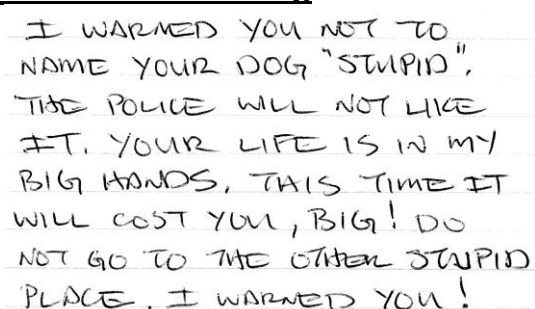 I WARNED YOU NOT TO
NAME YOUR DOG "STUPID".
THE POLICE WILL NOT LIKE
IT. YOUR LIFE IS IN MY
BIG HANDS. THIS TIME IT
WILL COST YOU, BIG! DO
NOT GO TO THE OTHER STUPID
PLACE. I WARNED YOU!